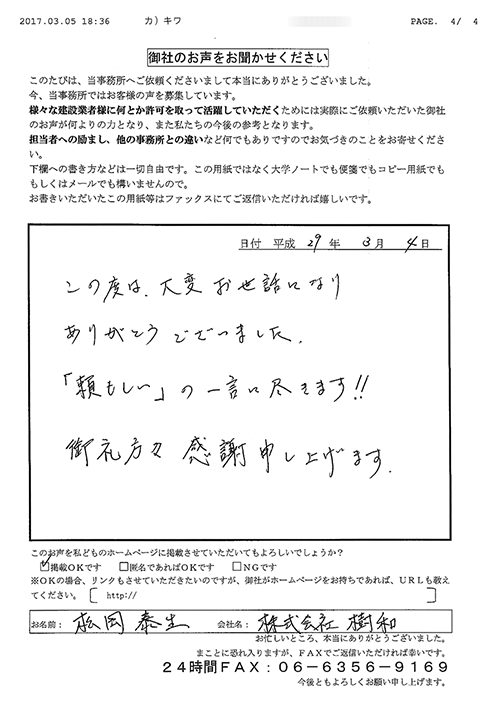 2017.03.05 18:36 カ) キワ PAGE. 4/ 4
御社のお声をお聞かせください
このたびは、当事務所へご依頼くださいまして本当にありがとうございました。
今、当事務所ではお客様の声を募集しています。
様々な建設業者様に何とか許可を取って活躍していただくためには実際にご依頼いただいた御社
のお声が何よりの力となり、また私たちの今後の参考となります。
担当者への励まし、他の事務所との違いなど何でもありですのでお気づきのことをお寄せくださ
い。
下欄への書き方などは一切自由です。この用紙ではなく大学ノートでも便箋でもコピー用紙でも
もしくはメールでも構いませんので。
お書きいただいたこの用紙等はファックスにてご返信いただければ嬉しいです。
日付 平成 29 年 3 月 4 日
この度は、大変お世話になり
ありがとうございました。
「頼もしい」の一言に尽きます!!
御礼方々 感謝申し上げます。
このお声を私どものホームページに掲載させていただいてもよろしいでしょうか?
☑掲載OKです □匿名であればOKです □NGです
※OKの場合、リンクもさせていただきたいのですが、御社がホームページをお持ちであれば、URLも教え
てください。[ http:// ]
お名前: 松岡 泰生 会社名: 株式会社 樹和
お忙しいところ、本当にありがとうございました。
まことに恐れ入りますが、FAXでご返信いただければ幸いです。
24時間FAX:06-6356-9169
今後ともよろしくお願い申し上げます。